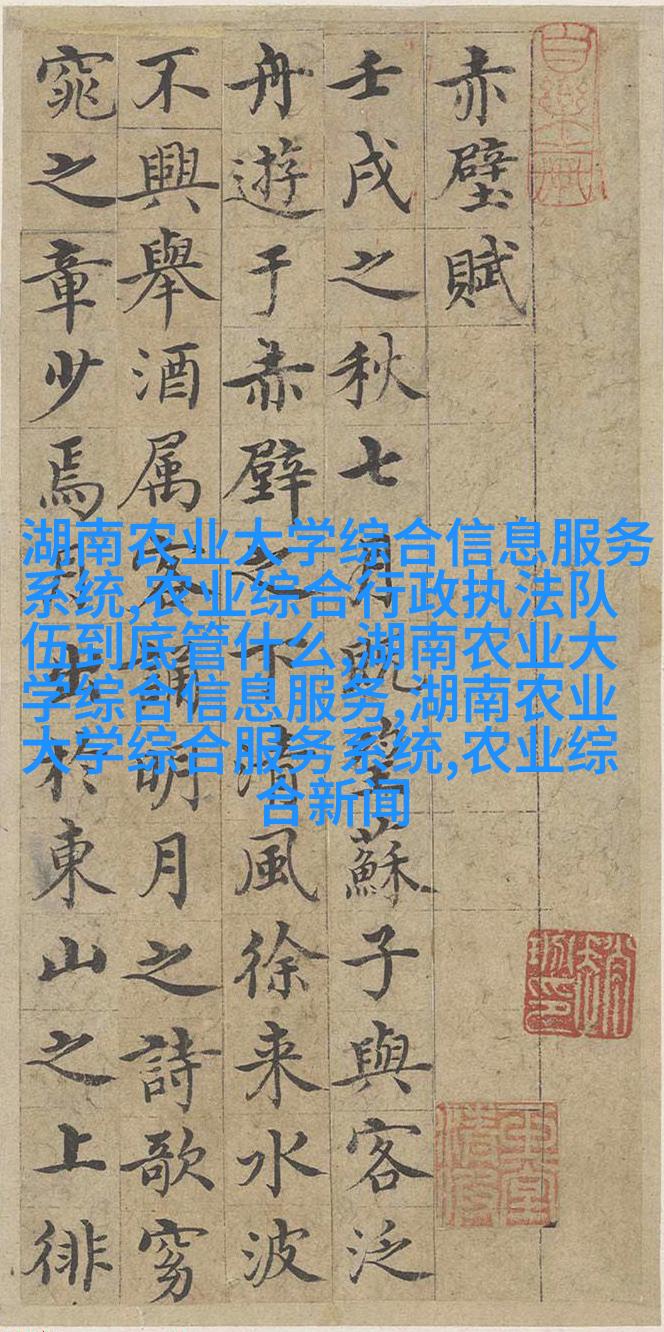 赤壁賦
壬戌之秋七月既望蘇子與客泛
舟遊于赤壁之下清風徐来水波
不興舉酒属客誦明月之詩歌窈
窕之章少焉月出於東山之上徘
湖南农业大学综合信息服务
系统,农业综合行政执法队
伍到底管什么,湖南农业大
学综合信息服务,湖南农业
大学综合服务系统,农业综
合新闻